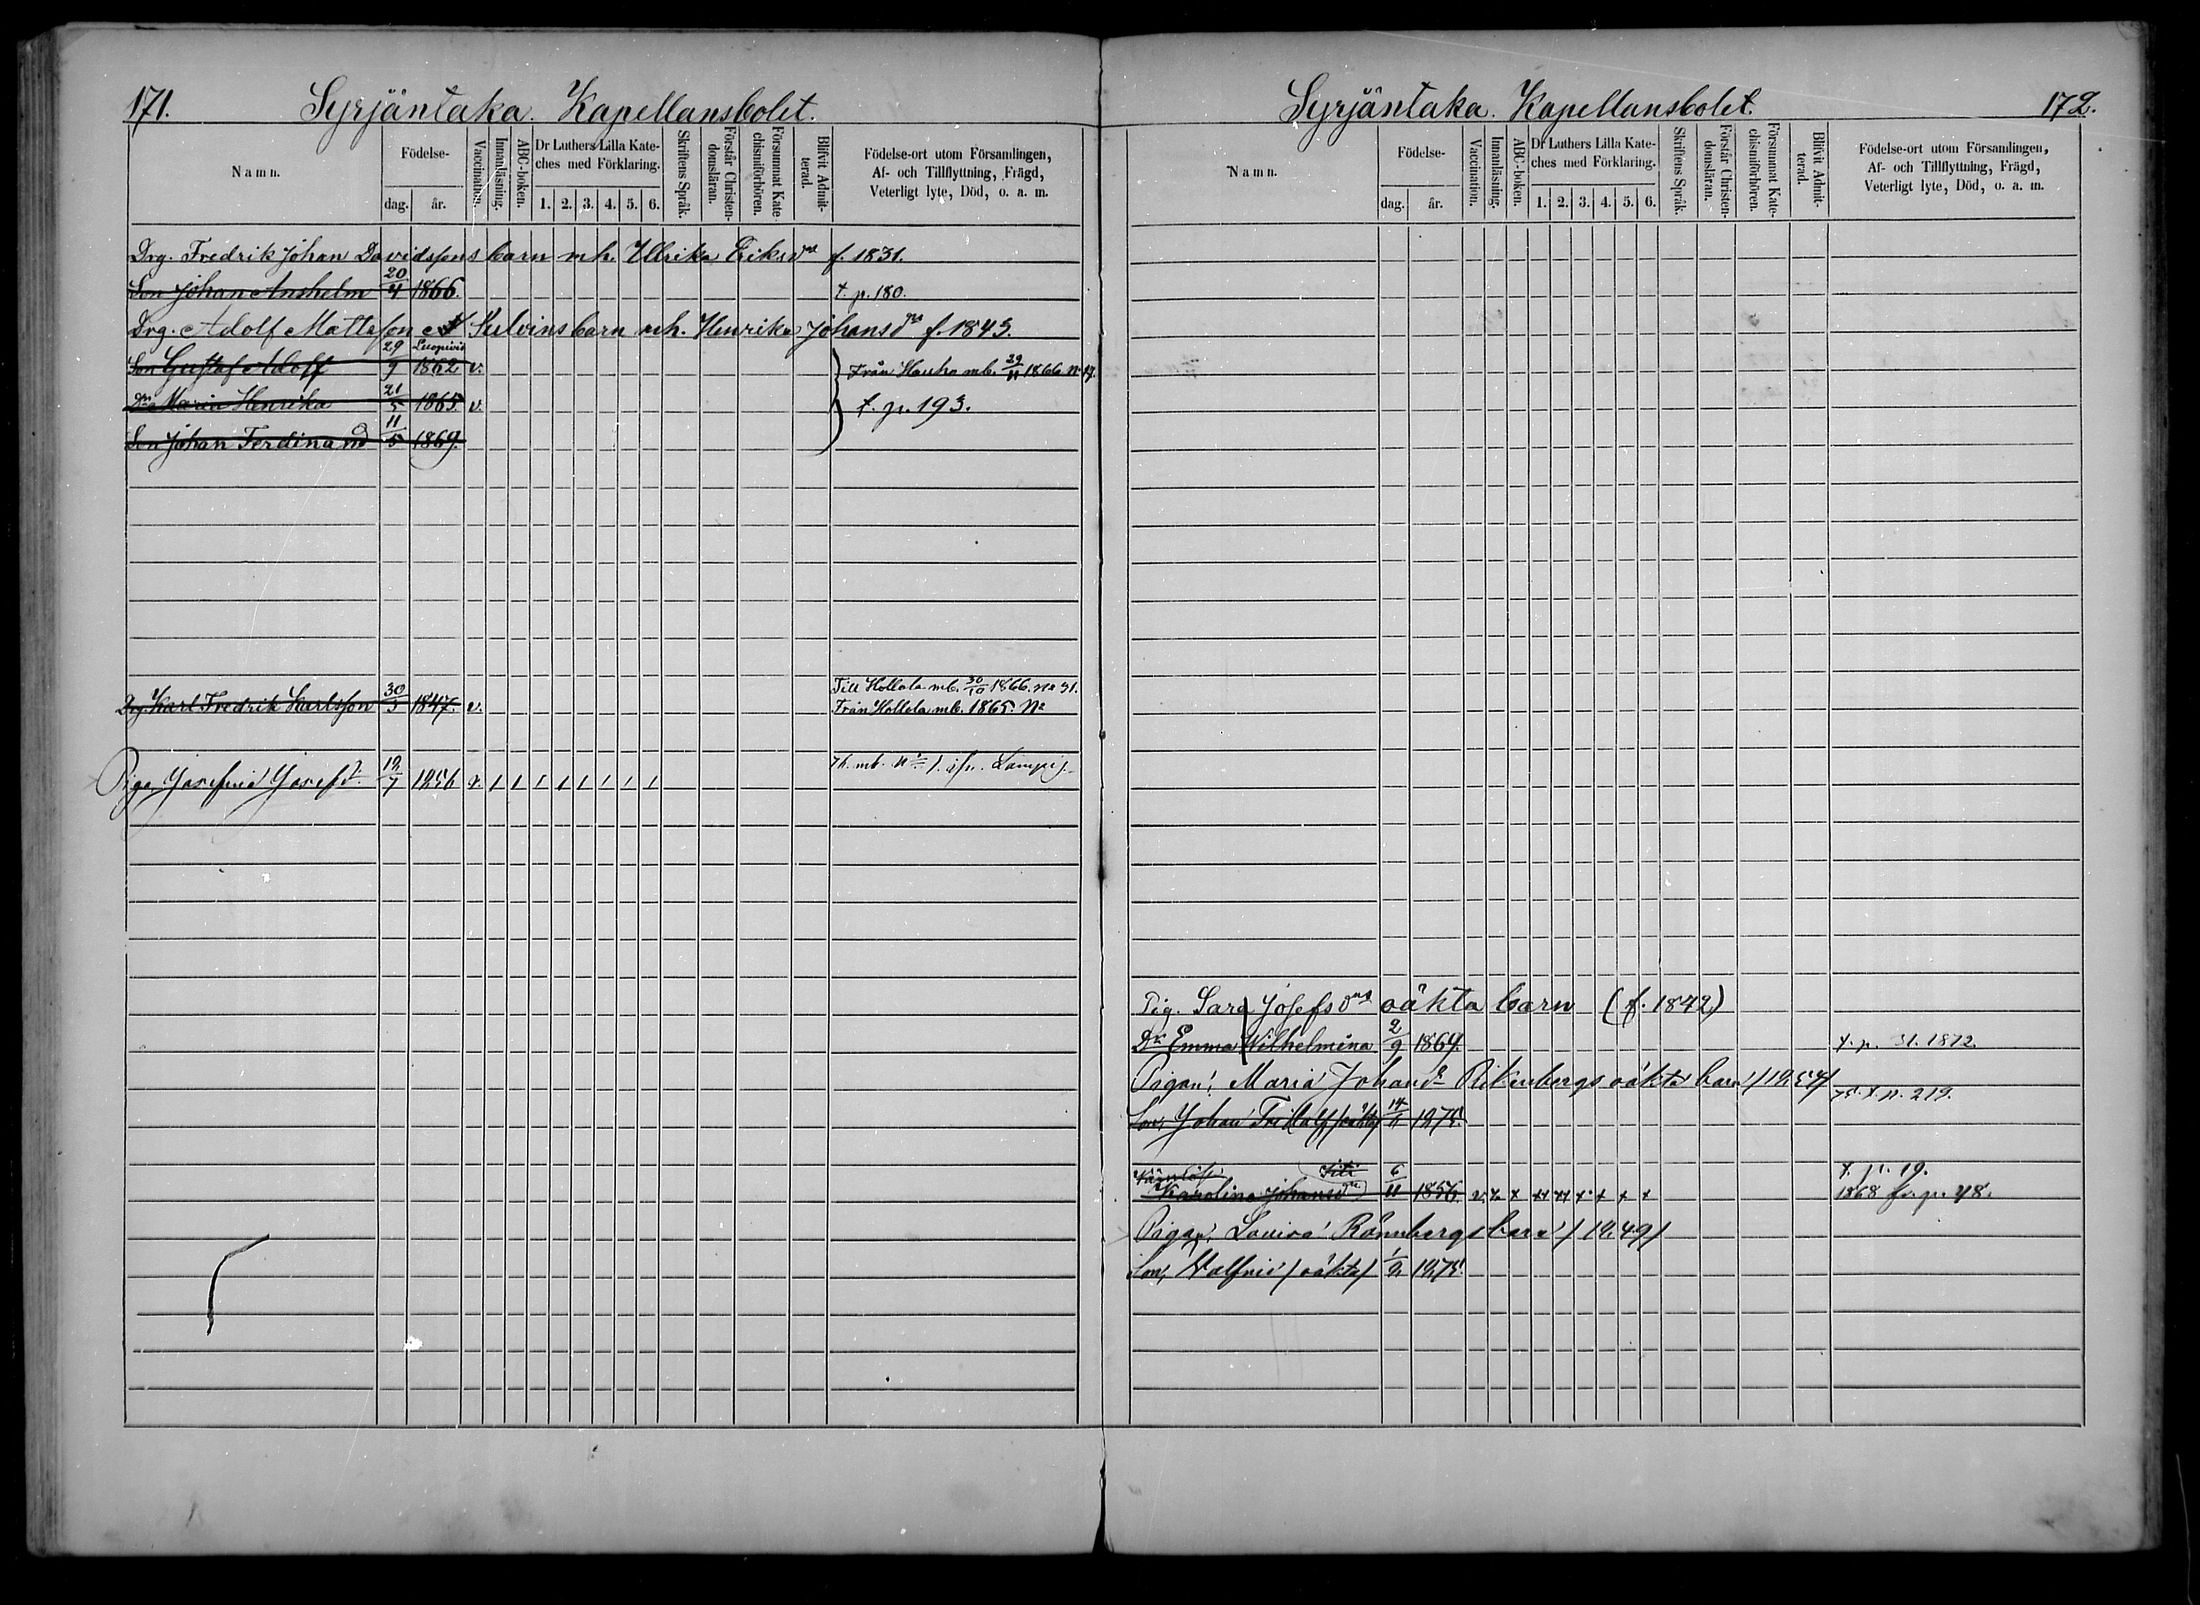 171. Syrjäntaka. Kapellansbolet.
Namn.
Födelse-
dag. år.
Vaccination.
Innanläsning.
ABC-boken.
Dr Luthers Lilla Kate-
ches med Förklaring.
1. 2. 3. 4. 5. 6.
Skriftens Språk.
Förstår Christen-
domsläran.
Försummat Kate-
chismiförhören.
Blifvit Admit-
terad.
Födelse-ort utom Församlingen,
Af- och Tillflyttning, Frägd,
Veterligt lyte, Död, o. a. m.
Drg. Fredrik Johan Davidssons barn mh. Ulrika Eriksdr f. 1831.
Son Johan Anshelm 20/4 1866. t. p. 180.
Drg. Adolf Mattsson Kulvins barn mh. Henrika Johansdr f. 1843.
Son Gustaf Adolf 29/9 1862 v. Från Hauho mb. 29/11 1866 No 19.
Dr Maria Henrika 21/5 1865. v. t. p. 193.
Son Johan Ferdinand 11/5 1869.
Till Hollola mb. 30/10 1866. No 31.
Drg. Karl Fredrik Karlsson 30/3 1847. v. Från Hollola mb. 1865. No
Piga Josefina Josefd. 12/7 1856 v. / / / / / / / /
Syrjäntaka. Kapellansbolet. 172.
Namn.
Födelse-
dag. år.
Vaccination.
Innanläsning.
ABC-boken.
Dr Luthers Lilla Kate-
ches med Förklaring.
1. 2. 3. 4. 5. 6.
Skriftens Språk.
Förstår Christen-
domsläran.
Försummat Kate-
chismiförhören.
Blifvit Admit-
terad.
Födelse-ort utom Församlingen,
Af- och Tillflyttning, Frägd,
Veterligt lyte, Död, o. a. m.
Pig. Sara Josefsdrs oäkta barn (f. 1842)
Dr Emma Wilhelmina 2/9 1869. t. p. 31. 1872.
Pigan, Maria Johansd. oäkta barn
t. p. 219.
Son, Johan 1875.
t. p. 19.
Karolina Johansdr 6/11 1856. 1868 fr. p. 48.
Pigan, Lovisa Rönnbergs barn /1849/
Son, Valfrid /oäkta/ 1/2 1875.